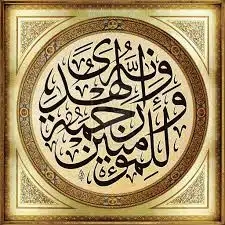 وَإِنَّهُ لَهُدًى
وَرَحْمَةٌ
لِّلْمُؤْمِنِينَ